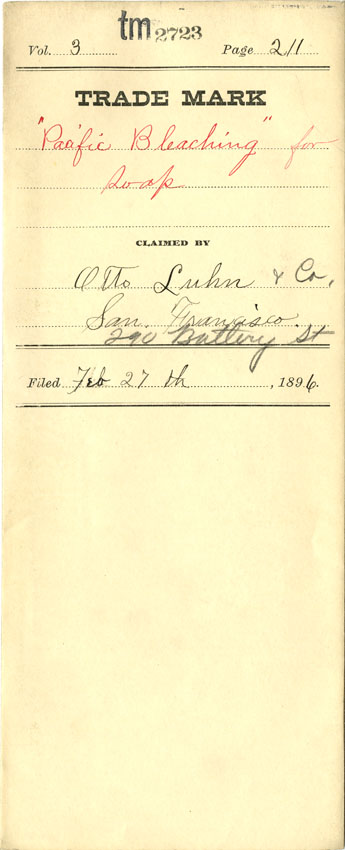 tm 2723
Vol. 3 Page 211
TRADE MARK
"Pacific Bleaching" for
soap
CLAIMED BY
Otto Luhn & Co.
San Francisco
290 Battery St
Filed Feb 27 th, 1896.